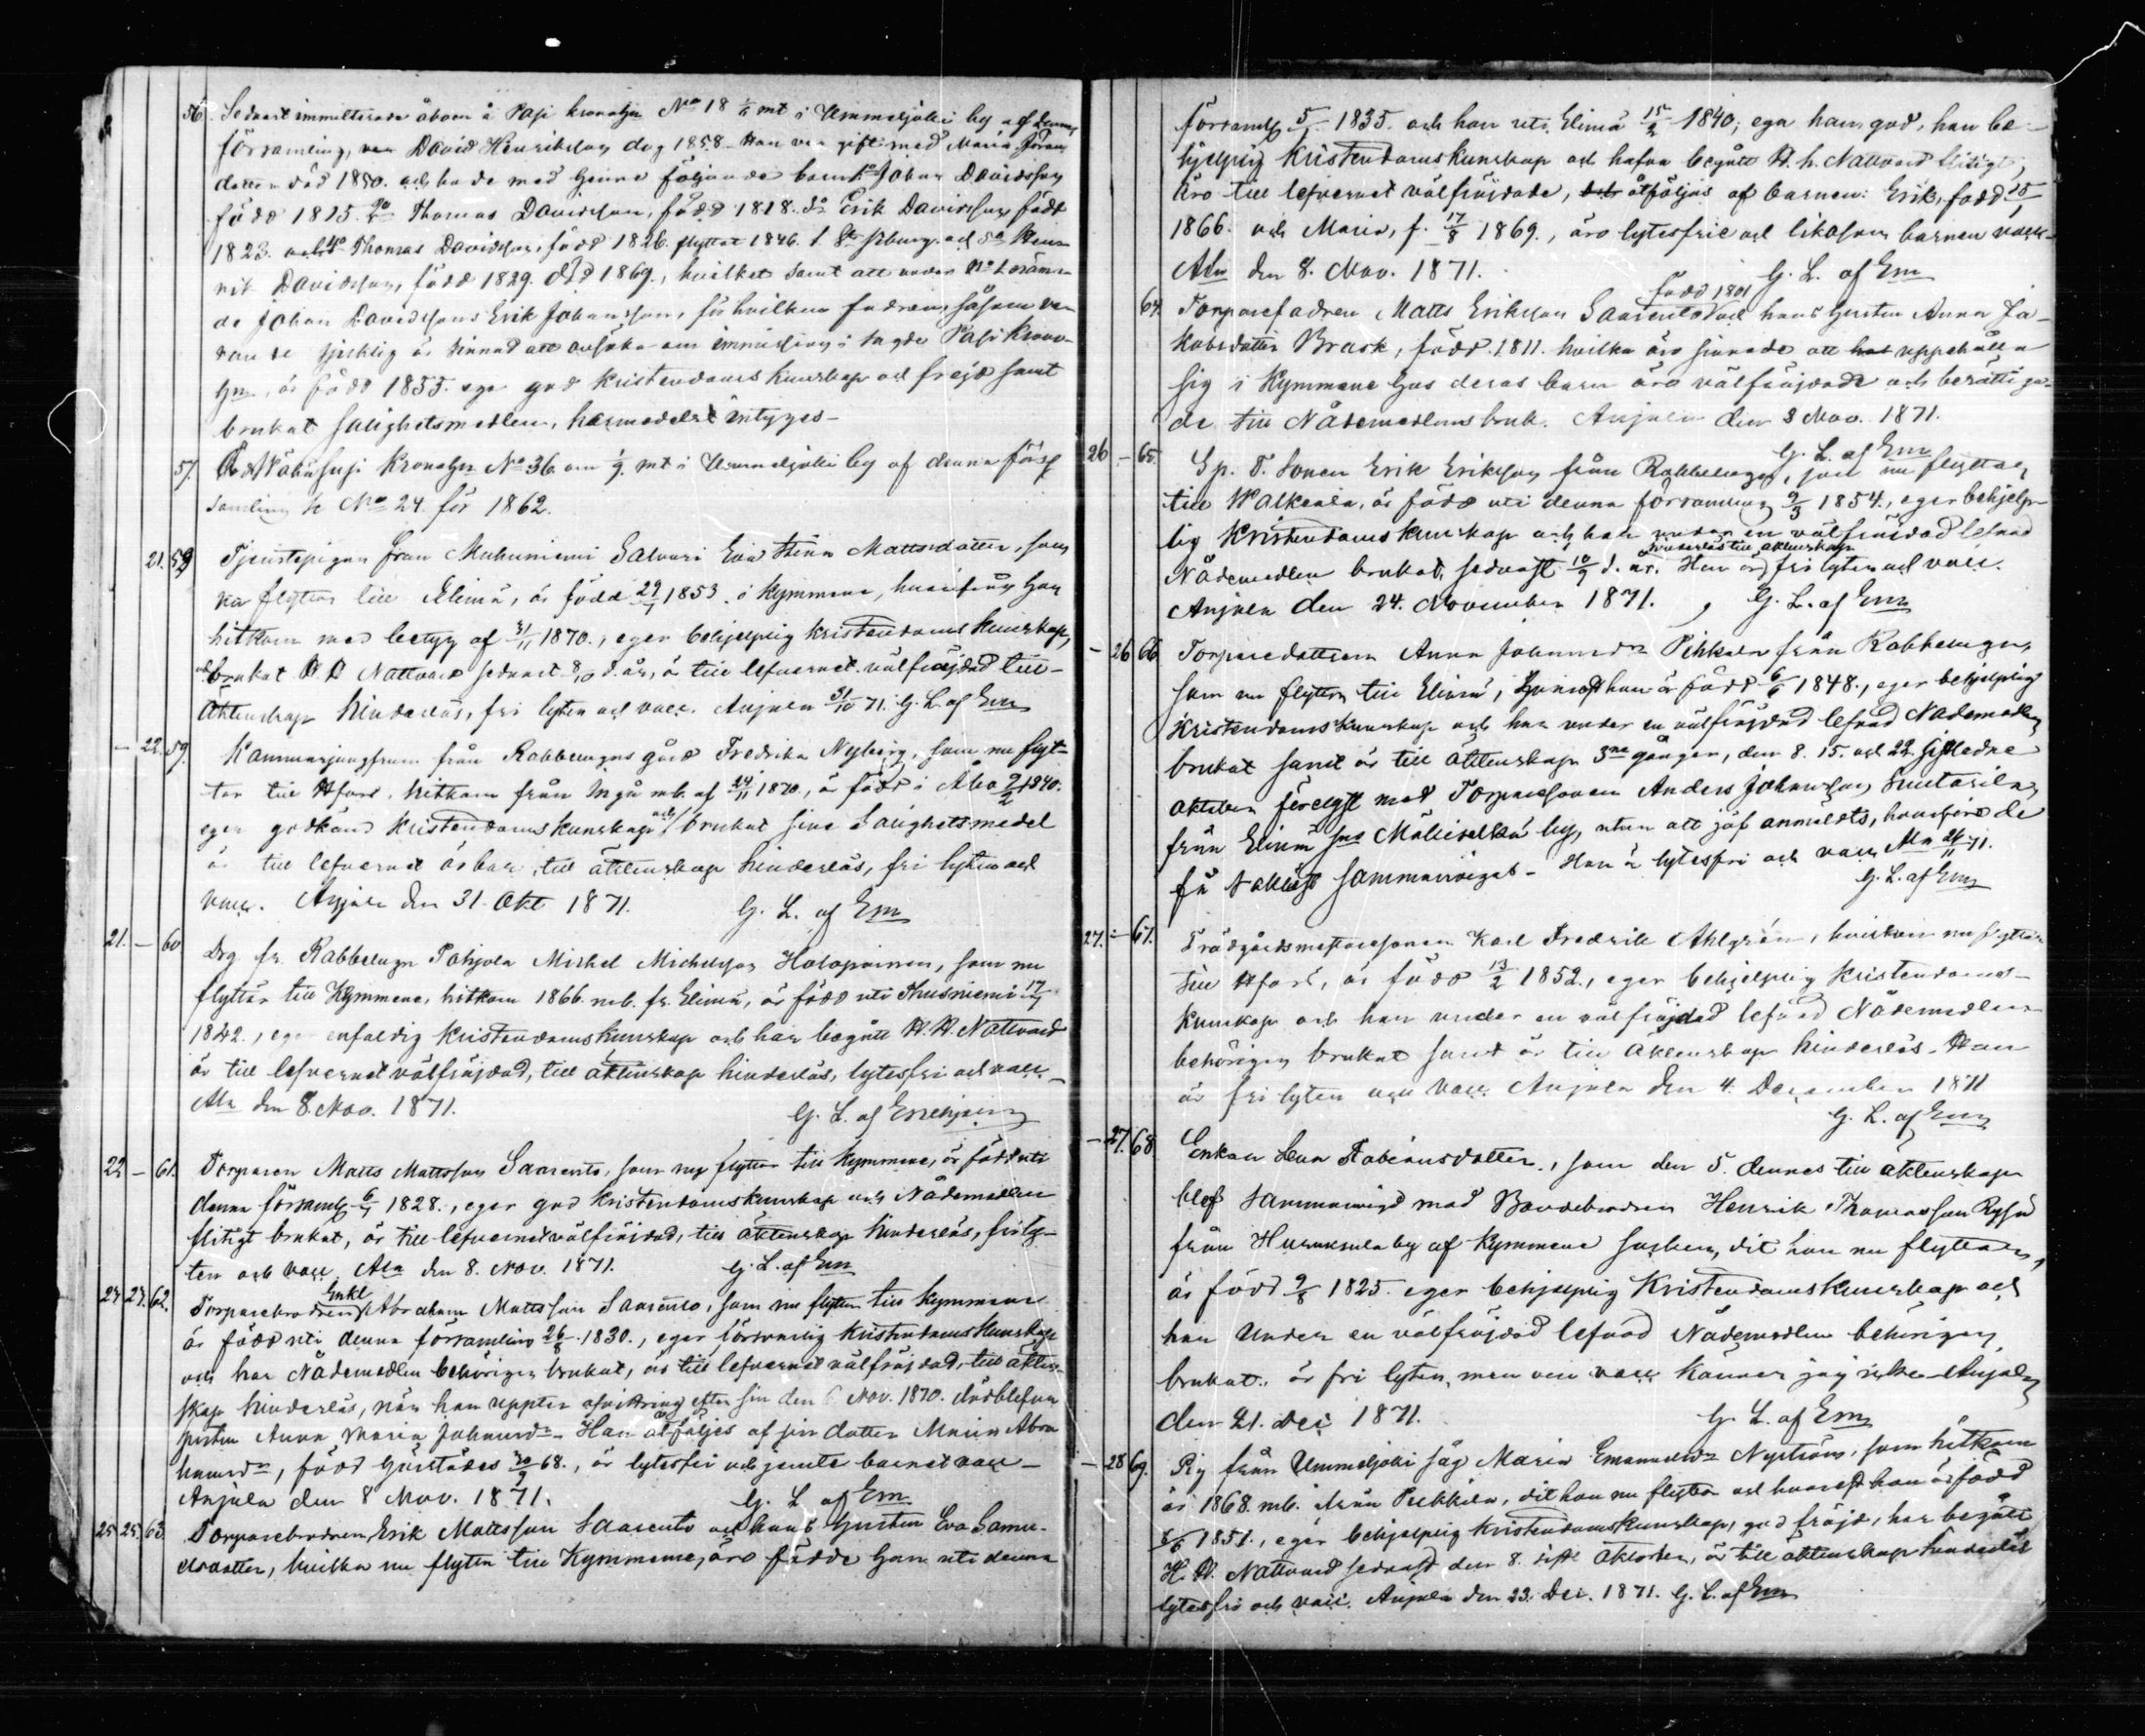 56. Sednast immitterade åboen å Pasi kronohgn No 18 1/6 mt i Ummeljoki by af denna
församling, var David Henriksson dog 1858. Han var gift med Maria Johans
dotter död 1850. och hade med henne följande barn 1o Johan Davidsson
född 1815. 2o Thomas Davidsson, född 1818. 3o Erik Davidsson född
1823. och 4o Thomas Davidsson, född 1826. flyttat 1846. t. St Pburg. och 5o Hen-
rik Davidsson, född 1829. död 1869., hvilket samt att under No 1 nämn-
de Johan Davidssons Erik Johansson, för hvilken fadren, såsom va-
rande sjuklig är sinnad att ansöka om immission i sagde Pasi Krono-
hgn, är född 1855. ega god kristendoms kunskap och frejd samt
brukat salighetsmedlen, harmedelst intygas-
57. Kronohgn No 36. om 1/9. mt i Ummeljoki by af denna för-
samling se No 24. för 1862.
21. 58 Tjenstepigan från Muhuniemi Eva Stina Mattsdotter, som
nu flyttar till Elimä, är född 29/1 1853. i Kymmene, hvarifrån hon
hitkom med betyg af 3/11 1870., eger behjelplig kristendoms kunskap,
och brukat H. H. Nattvard sednast 8/10 d. år, är till lefvernet välfräjdad till
äktenskap hinderlös, fri lyten och vacc. Anjala 31/10 71. G. L. af Em
- 22. 59. Kammarjungfrun från Rabbelugns gård Fredrika Nyberg, som nu flyt-
tar till Hfors. hitkom från Ingå mb. af 24/11 1870., är född i Åbo 9/2 1840.
eger godkänd kristendomskunskap och brukat sina Salighetsmedel
är till lefvernet ärbar, till äktenskap hinderlös, fri lyten och
vacc. Anjala den 31. Okt 1871. G. L. af Em
21. - 60 Drg fr. Rabbelugn Pohjola Mickel Michelsson Holopainen, som nu
flyttar till Kymmene, hitkom 1866. mb. fr. Elimä, är född uti Thusniemi 17/
1842., eger enfaldig kristendomskunskap och har begått H. H. Nattvard
är till lefvernet välfräjdad, till äktenskap hinderlös, lytesfri och vacc.
Ala den 8. Nov. 1871. G. L. af Enehjelm
22 - 61. Torparen Matts Mattsson Saarento, som nu flyttar till Kymmene, är född uti
denna församlg 6/1 1828., eger god kristendomskunskap och Nådemedlen
flitigt brukat, är till lefvernet välfräjdad, till äktenskap hinderlös, fri ly-
ten och vacc Ala den 8. Nov. 1871. G. L. af Em
24. 23. 62. Torparebrodren Enkl Abraham Mattsson Saarento, som nu flyttar till Kymmene
är född uti denna församling 26/8 1830., eger försvarlig kristendomskunskap
och har Nådemedlen behörigen brukat, är till lefvernet välfräjdad, till äkten-
skap hinderlös, när han uppter afvittring efter sin den 6 Nov. 1870. dödblefna
hustru Anna Maria Johansdr. Han åtföljes af sin dotter Maria Abra
hamsdr, född härstädes 20/2 68., är lytesfri och jemte barnet vacc-
Anjala den 8 Nov. 1871. G. L. af Em.
25 25. 63. Torparebrodren, Erik Mattsson Saarento och hans hustru Eva Samu-
elsdotter, hvilka nu flytta till Kymmene, äro födde han uti denna
församlg 5/1 1835. och hon uti Elimä 15/2 1840; ega han god, hon be-
hjelplig kristendomskunskap och hafva begått H. h. Nattvard flitigt,
äro till lefvernet välfräjdade, åtföljas af barnen: Erik, född 25/1
1866. och Maria, f. 17/8 1869., äro lytesfrie och likasom barnen vacc-
Ala den 8. Nov. 1871. G. L. af Em
64. Torparefadren Matts Eriksson Saarento född 1801 och hans hustru Anna Ja-
kobsdotter Brask, född. 1811. hvilka äro sinnade att uppehålla
sig i Kymmene hos deras barn äro välfräjdade och berättiga-
de till Nådemedlens bruk. Anjala den 8 Nov. 1871.
G. L. af Em
26 - 65. Gp. T. Sonen Erik Eriksson från Rabbelugn, som nu flyttar
till Walkeala, är född uti denna församling 9/3 1854., eger behjelp-
lig Kristendomskunskap och har under en välfräjdad lefnad
Nådemedlen brukat, sednast 10/9 d. år. Han är hinderlös till äktenskap fri lyten och vacc.
Anjala den 24. November 1871. G. L. af Em
- 26 66 Torparedottern Anna Johansdr Pihkala från Rabbelugn,
som nu flyttar till Elimä, hvarest hon är född 6/6 1848., eger behjelplig
Kristendomskunskap och har under en välfräjdad lefnad Nådemedlen
brukat samt är till äktenskap 3ne gånger, den 8. 15. och 22. sistledne
oktober förelyst med Torparesonen Anders Johansson Suutarila,
från Elimä sns Mälliselkä by, utan att jäf anmäldts, hvarföre de
få Nakligt sammanvigas- Hon är lytesfri och vacc Ala 24/11 71.
G. L. af Em
27. - 67. Trädgårdsmästaresonen Karl Fredrik Ahlgren, hvilken nu flyttar
till Hfors, är född 13/2 1852., eger behjelplig Kristendoms-
kunskap och har under en välfräjdad lefnad Nådemedlen
behörigen brukat samt är till äktenskap hinderlös. Han
är fri lyten och vacc. Anjala den 4. December 1871
G. L. af Em
- 27. 68. Enkan Eva Fabiansdotter, som den 5. dennes till äktenskap
blef sammanvigd med Bondebrodren Henrik Thomasson Rysä
från Huruksela by af Kymmene socken, dit hon nu flyttar,
är född 9/8 1825. eger behjelplig Kristendomskunskap och
har under en välfräjdad lefnad Nådemedlen behörigen
brukat. är fri lyten, men om vacc känner jag icke Anjala
den 21. Dec 1871. G. L. af Em
- 28 69. Pig från Ummeljoki såg Maria Emanuelsdr Nyström, som hitkom
år 1868. mb. från Puckkila, dit hon nu flyttar och hvarest hon är född
/6 1851., eger behjelplig kristendomskunskap, god fräjd, har begått
H. H. Nattvard sednast den 8. sistl Oktober, är till äktenskap hinderlös
lytesfri och vacc. Anjala den 23. Dec. 1871. G. L. af Em